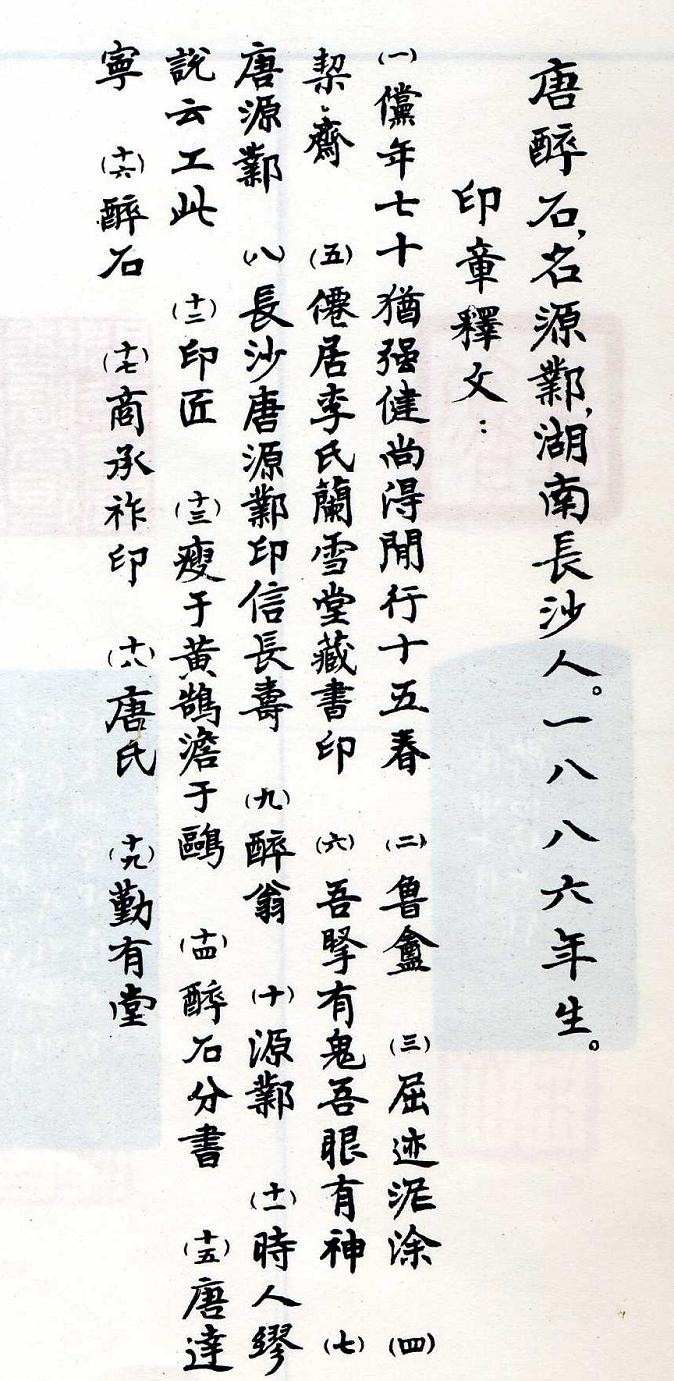 唐醉石，名源鄴，湖南長沙人。一八八六年生。
印章釋文：
（一）儻年七十猶强健尚得閒行十五春 （二）魯盦 （三）屈迹泥涂 （四）
挈、齋 （五）僊居李氏蘭雪堂藏書印 （六）吾擥有鬼吾眼有神 （七）
唐源鄴 （八）長沙唐源鄴印信長壽 （九）醉翁 （十）源鄴 （十一）時人繆
說云工此 （十二）印匠 （十三）瘦于黃鵠澹于鷗 （十四）醉石分書 （十五）唐達
寧 （十六）醉石 （十七）商承祚印 （十八）唐氏 （十九）勤有堂